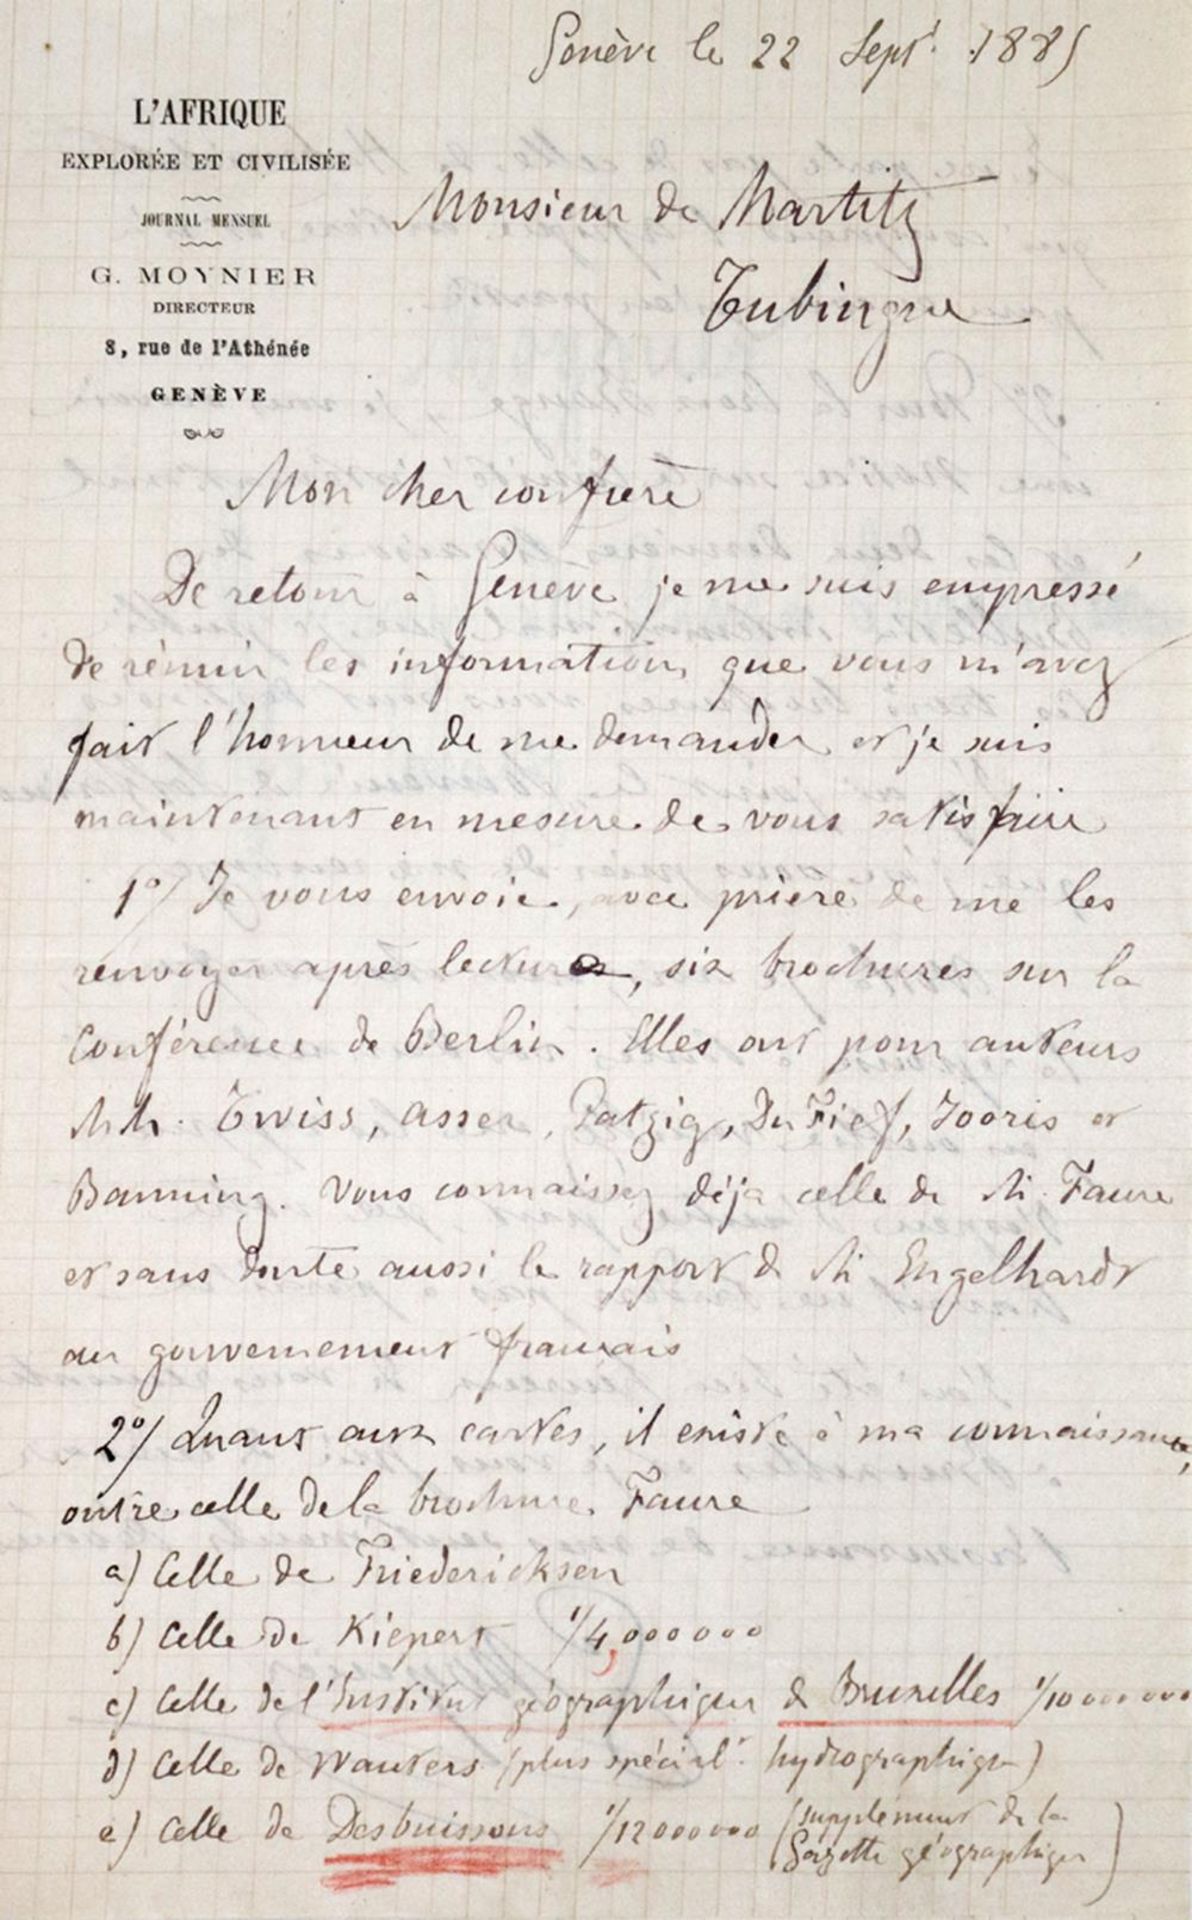 Genève le 22 Sept. 1885
L'AFRIQUE
EXPLORÉE ET CIVILISÉE
JOURNAL MENSUEL
G. MOYNIER
DIRECTEUR
8, rue de l'Athénée
GENÈVE
Monsieur de Martitz
Tubingue
Mon cher confrère
De retour à Genève je me suis empressé
de réunir les informations que vous m'avez
fait l'honneur de me demander et je suis
maintenant en mesure de vous satisfaire
1°/ Je vous envoie, avec prière de me les
renvoyer après lecture, six brochures sur la
Conférence de Berlin. Elles ont pour auteurs
MM. Twiss, Asser, Patzig, Du Fief, Jooris et
Banning. Vous connaissez déja celle de M. Faure
et sans doute aussi le rapport de M Engelhardt
au gouvernement français
2°/ Quant aux cartes, il existe à ma connaissance,
outre celle de la brochure Faure
a) Celle de Friedericksen
b) Celle de Kiepert 1/4,000000
c) Celle de l'Institut géographique de Bruxelles 1/10000000
d) Celle de Wauters (plus spécial.t hydrographique)
e) Celle de Desbuissons 1/12000000 (supplément de la
Gazette géographique)